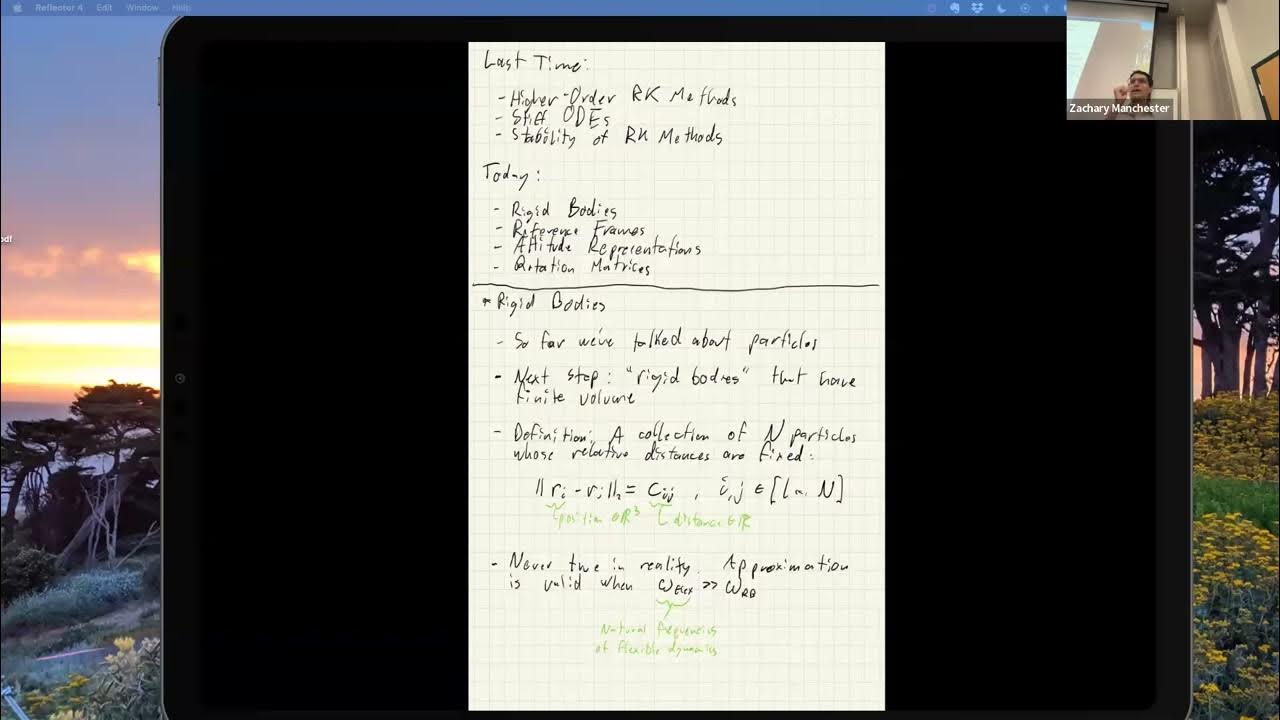 Reflector 4 Edit Window Help
Zachary Manchester
pdf
Last Time:
- Higher-Order RK Methods
- Stiff ODEs
- Stability of RK Methods
Today:
- Rigid Bodies
- Reference Frames
- Attitude Representations
- Rotation Matrices
* Rigid Bodies
- So far we've talked about particles
- Next stop: "rigid bodies" that have
finite volume
- Definition: A collection of N particles
whose relative distances are fixed:
||r_i - r_j||_2 = C_ij , i,j ∈ [1 ... N]
position ∈ ℝ³ distance ∈ ℝ
- Never true in reality. Approximation
is valid when ω_flex >> ω_RB
Natural frequencies
of flexible dynamics